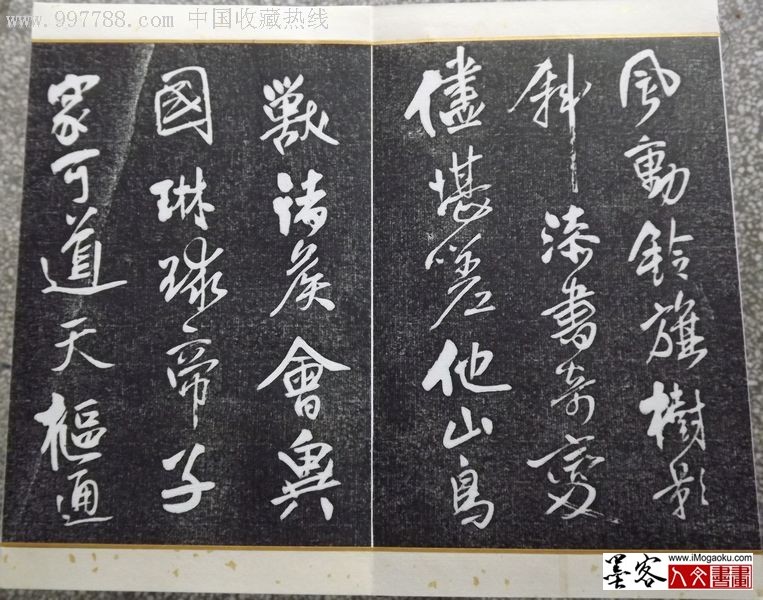 www.997788.com 中国收藏热线
風動鈴旗樹影
斜漆書奇變
儘堪嗟他山鳥
獸諸侯會異
國琳球帝子
家可道天樞通
www.iMogaoku.com
墨客人文書畫